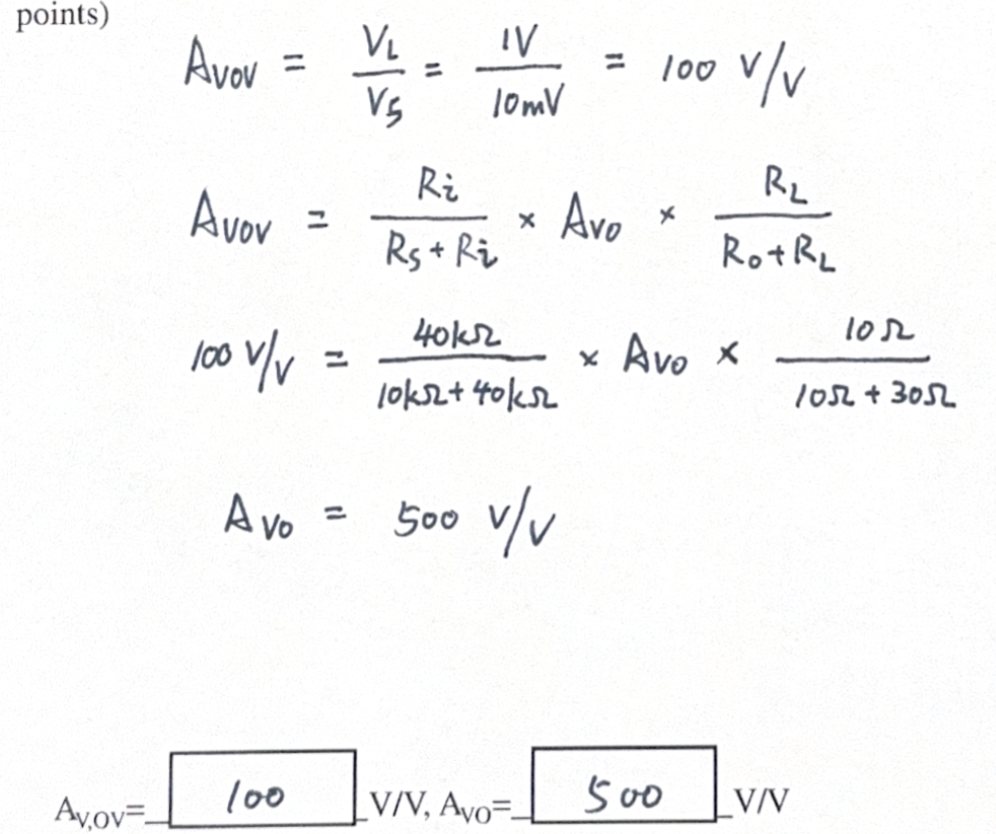 points)
A_VOV = V_L / V_S = 1V / 10mV = 100 V/V
A_VOV = R_i / (R_S + R_i) × A_VO × R_L / (R_O + R_L)
100 V/V = 40kΩ / (10kΩ + 40kΩ) × A_VO × 10Ω / (10Ω + 30Ω)
A_VO = 500 V/V
A_V,OV=_ 100 _V/V, A_VO=_ 500 _V/V